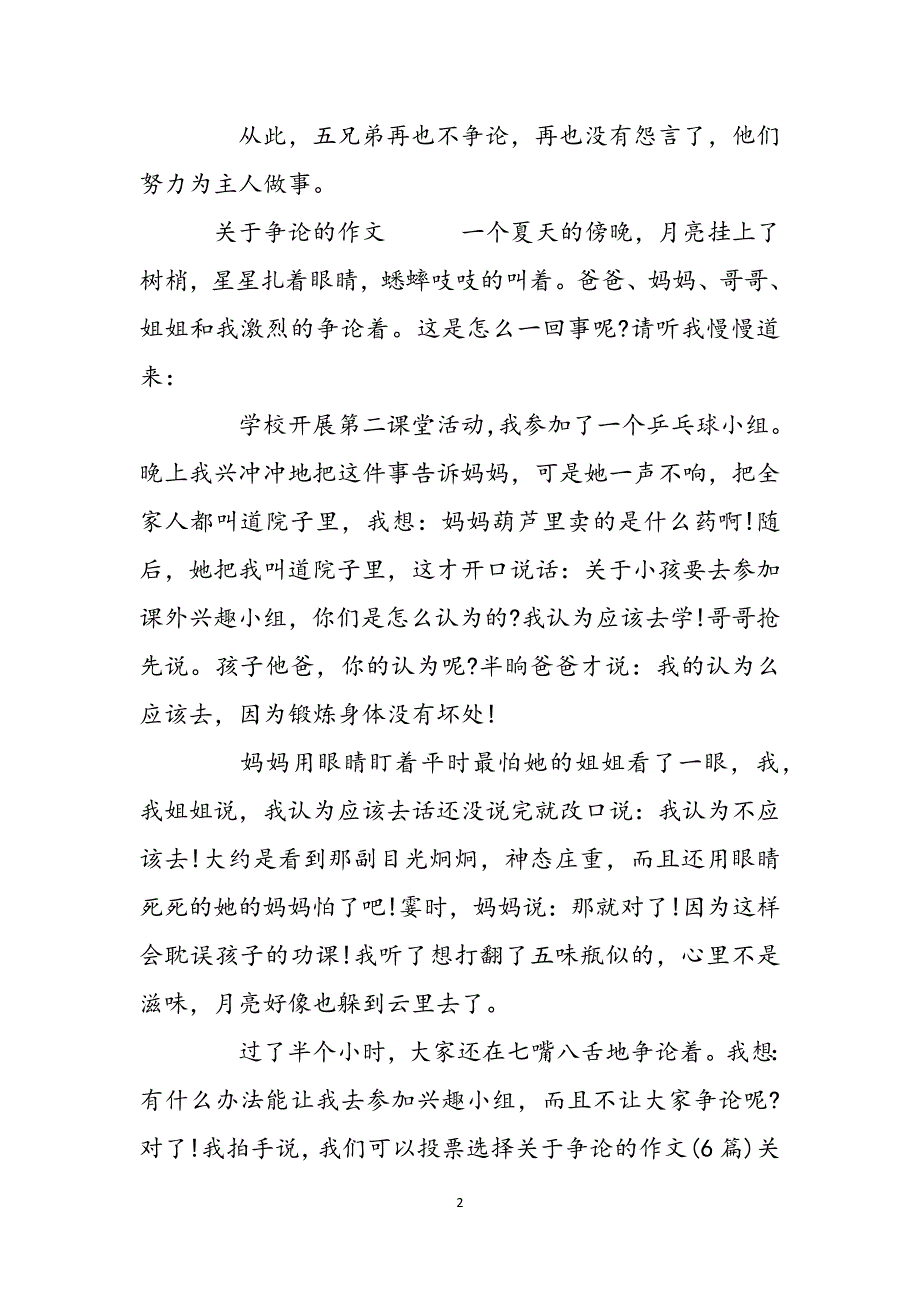 从此，五兄弟再也不争论，再也没有怨言了，他们
努力为主人做事。
关于争论的作文 一个夏天的傍晚，月亮挂上了
树梢，星星扎着眼睛，蟋蟀吱吱的叫着。爸爸、妈妈、哥哥、
姐姐和我激烈的争论着。这是怎么一回事呢?请听我慢慢道
来：
学校开展第二课堂活动,我参加了一个乒乓球小组。
晚上我兴冲冲地把这件事告诉妈妈，可是她一声不响，把全
家人都叫道院子里，我想：妈妈葫芦里卖的是什么药啊!随
后，她把我叫道院子里，这才开口说话：关于小孩要去参加
课外兴趣小组，你们是怎么认为的?我认为应该去学!哥哥抢
先说。孩子他爸，你的认为呢?半晌爸爸才说：我的认为么
应该去，因为锻炼身体没有坏处!
妈妈用眼睛盯着平时最怕她的姐姐看了一眼，我，
我姐姐说，我认为应该去话还没说完就改口说：我认为不应
该去!大约是看到那副目光炯炯，神态庄重，而且还用眼睛
死死的她的妈妈怕了吧!霎时，妈妈说：那就对了!因为这样
会耽误孩子的功课!我听了想打翻了五味瓶似的，心里不是
滋味，月亮好像也躲到云里去了。
过了半个小时，大家还在七嘴八舌地争论着。我想：
有什么办法能让我去参加兴趣小组，而且不让大家争论呢?
对了!我拍手说,我们可以投票选择关于争论的作文(6篇)关
2